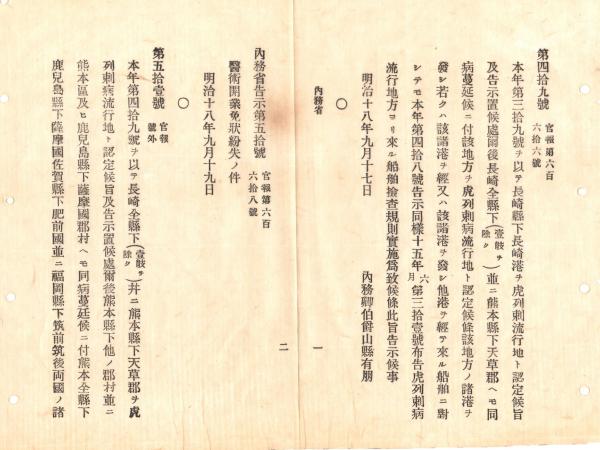 第四拾九號
官報第六百
六拾六號
本年第三拾九號ヲ以テ長崎縣下長崎港ヲ虎列刺流行地ト認定候旨
及告示置候處爾後長崎全縣下(壹岐ヲ除ク)並ニ熊本縣下天草郡ヘモ同
病蔓延候ニ付該地方ヲ虎列刺病流行地ト認定候條該地方ノ諸港ヲ
發シ若クハ該諸港ヲ經又ハ該諸港ヲ發シ他港ヲ經テ來ル船舶ニ對
シテモ本年第四拾八號告示同樣十五年六月第三拾壹號布告虎列刺病
流行地方ヨリ來ル船舶撿查規則實施爲致候條此旨告示候事
明治十八年九月十七日
內務卿伯爵山縣有朋
內務省
一
○
內務省告示第五拾號
官報第六百
六拾八號
醫術開業免狀紛失ノ件
明治十八年九月十九日
二
○
第五拾壹號
官報
號外
本年第四拾九號ヲ以テ長崎全縣下(壹岐ヲ除ク)幷ニ熊本縣下天草郡ヲ虎
列刺病流行地ト認定候旨及告示置候處爾後熊本縣下他ノ郡村並ニ
熊本區及ヒ鹿兒島縣下薩摩國郡村ヘモ同病蔓延候ニ付熊本全縣下
鹿兒島縣下薩摩國佐賀縣下肥前國並ニ福岡縣下筑前筑後両國ノ諸